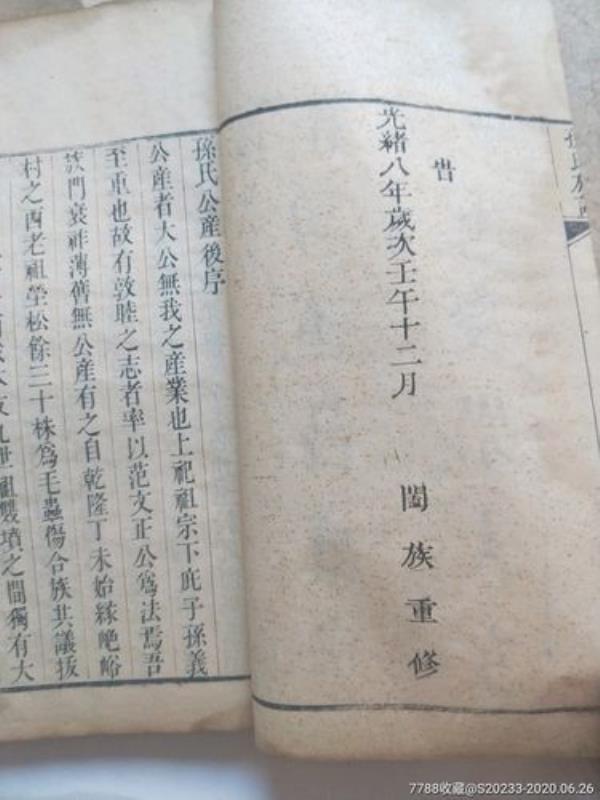 孫氏族
旹
光緒八年歲次壬午十二月
闔族重修
孫氏公產後序
公產者大公無我之産業也上祀祖宗下庇子孫義
至重也故有敦睦之志者率以范文正公爲法焉吾
族門衰祚薄舊無公産有之自乾隆丁未始緣峪
村之西老祖塋松餘三十株爲毛蟲傷合族共議扳
世祖雙墳之間獨有大
7788收藏@S20233-2020.06.26